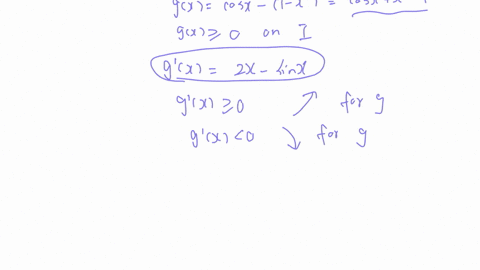 g(x) = cosx - (1-x²) = cosx+x²-1
g(x) ≥ 0 on I
g'(x) = 2x - sinx
g'(x) ≥ 0 ↗ for g
g'(x) < 0 ↘ for g